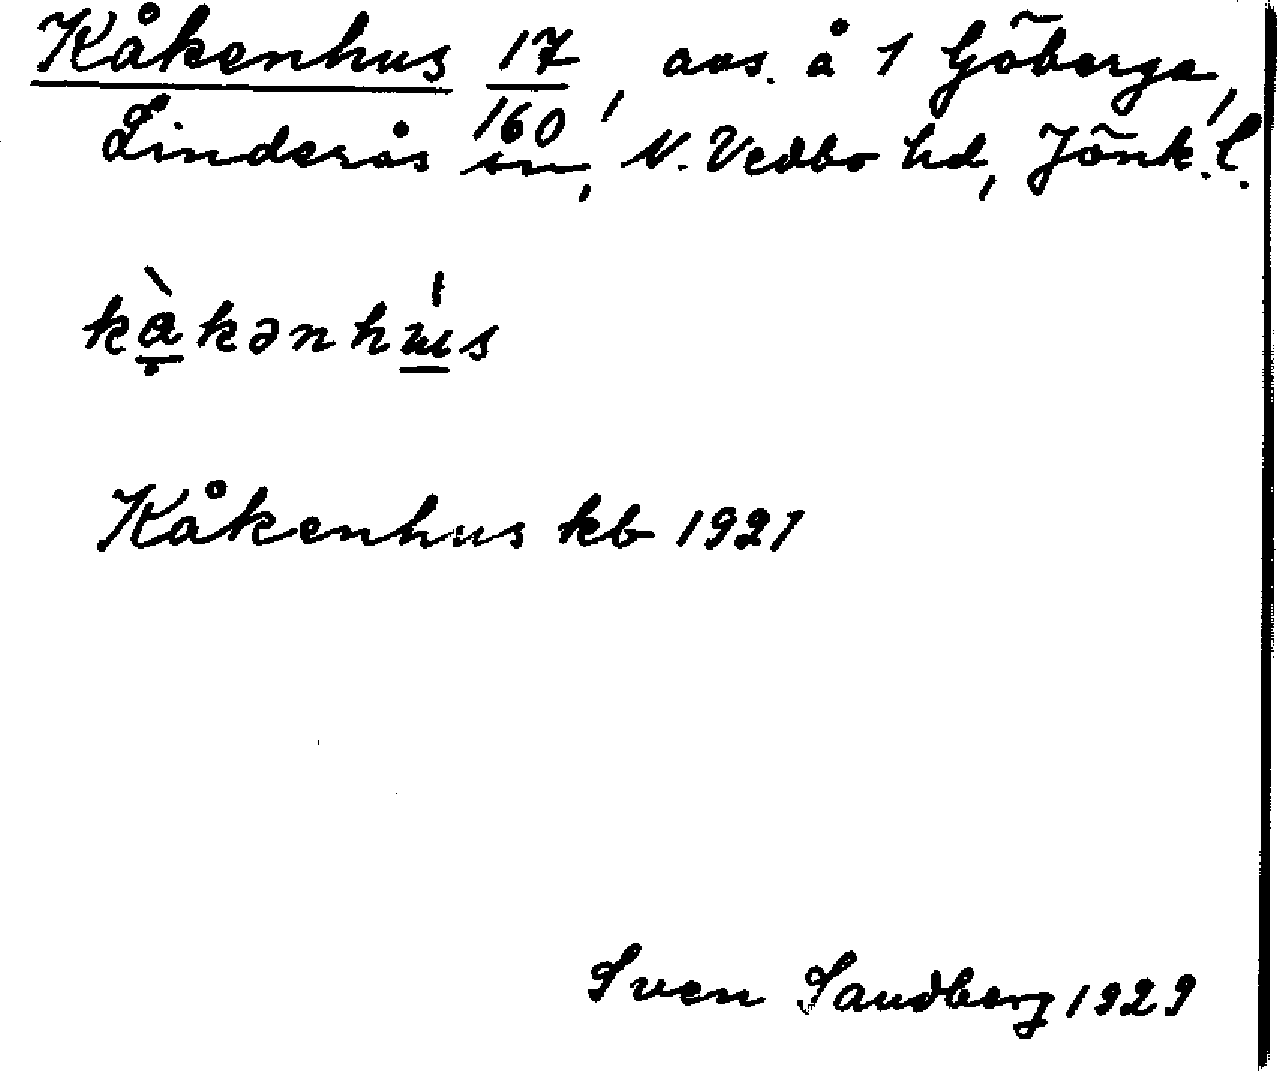 Kåkenhus 17/160, avs. å 1 Göberga,
Linderås sn, N. Vedbo hd, Jönk. l.
kạ̀kənhu̍s
Kåkenhus kb 1921
Sven Sandberg 1929